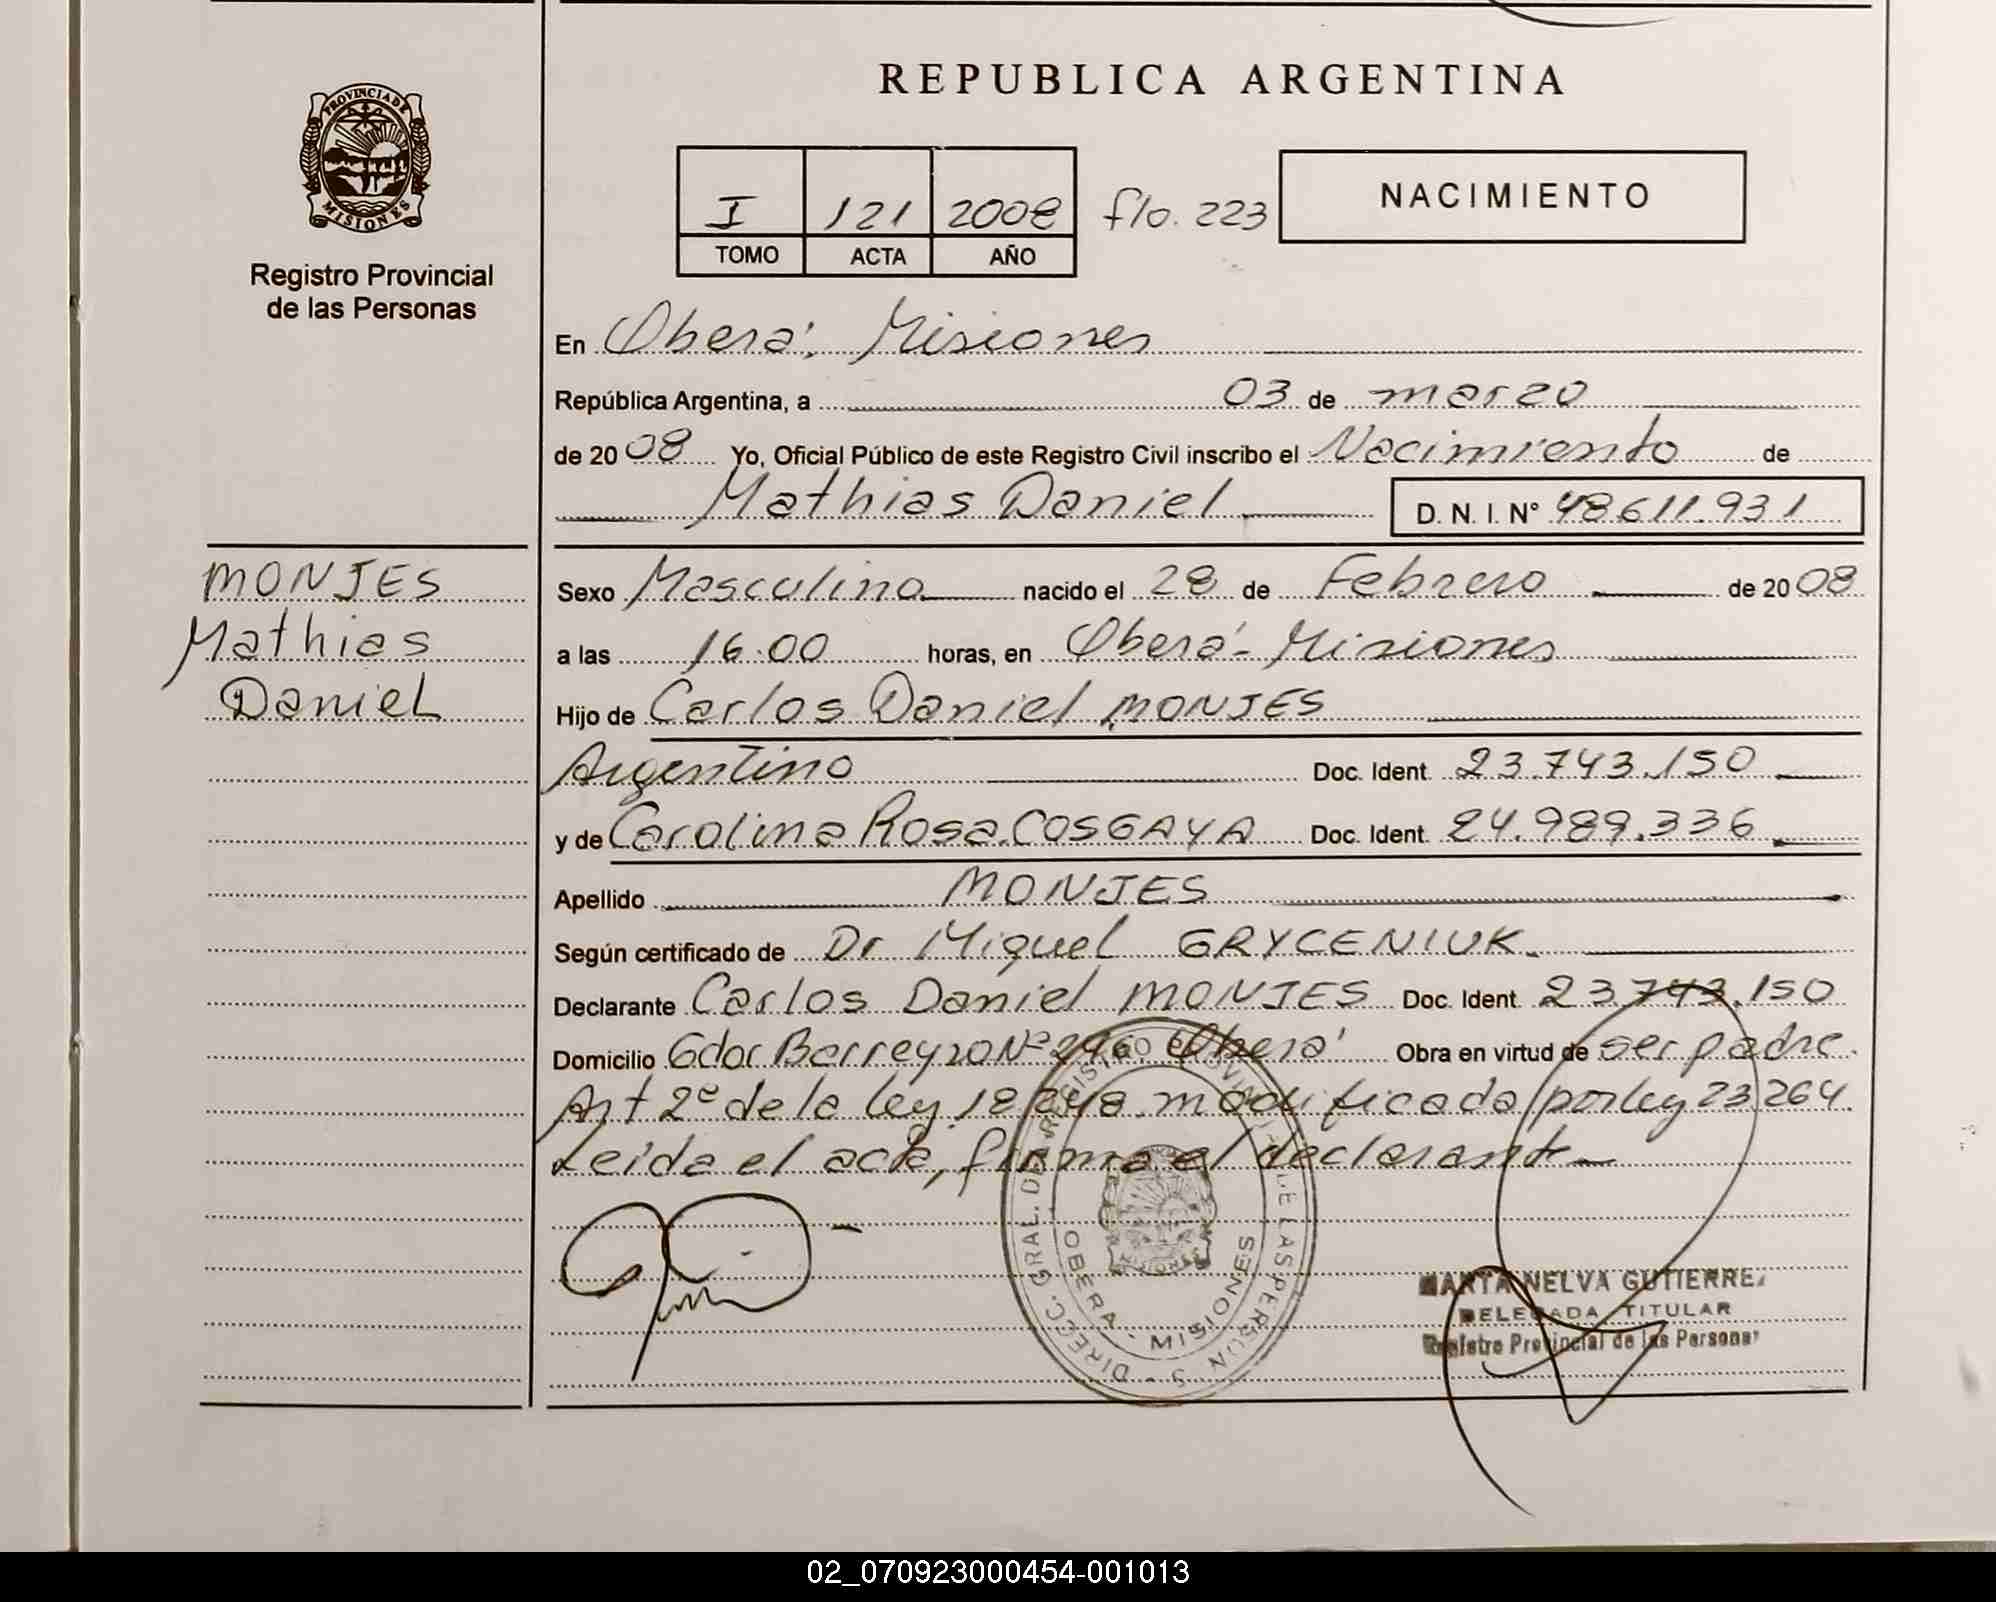 REPUBLICA ARGENTINA
PROVINCIA DE
MISIONES
Registro Provincial
de las Personas
I 121 2008 flo. 223
TOMO ACTA AÑO
NACIMIENTO
En Oberá, Misiones
República Argentina, a 03 de marzo
de 20 08 Yo, Oficial Público de este Registro Civil inscribo el Nacimiento de
Mathias Daniel D. N. I. N° 48611.931
MONJES
Mathias
Daniel
Sexo Masculino nacido el 28 de Febrero de 20 08
a las 16.00 horas, en Oberá - Misiones
Hijo de Carlos Daniel MONJES
Argentino Doc. Ident. 23.743.150
y de Carolina Rosa COSGAYA Doc. Ident. 24.989.336
Apellido MONJES
Según certificado de Dr Miguel GRYCENIUK.
Declarante Carlos Daniel MONJES Doc. Ident. 23.743.150
Domicilio Gdor Barreyro Nº Oberá Obra en virtud de ser padre.
Art 2º de la ley 18.248 modificada por ley 23.264.
Leida el acta, firma el declarante -
DIRECC. GRAL. DE REGISTRO PROVINCIAL DE LAS PERSONAS
OBERA - MISIONES
MARTA NELVA GUTIERREZ
DELEGADA TITULAR
Registro Provincial de las Personas
02_070923000454-001013